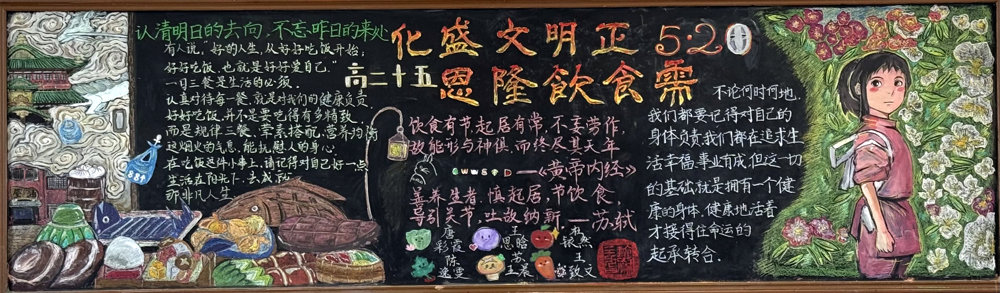 认清明日的去向,不忘昨日的来处
有人说,“好的人生,从好好吃饭开始,
好好吃饭,也就是好好爱自己.”
一日三餐是生活的必须.
认真对待每一餐,就是对我们的健康负责.
好好吃饭,并不是要吃得有多精致.
而是规律三餐,荤素搭配,营养均衡
这烟火的气息,能抚慰人的身心.
在吃饭这件小事上,请记得对自己好一点
生活在阳光下,去成
那非凡人生
化盛文明正5·20
高二十五恩隆飲食需
饮食有节,起居有常,不妄劳作,
故能形与神俱,而终尽其天年
——《黄帝内经》
善养生者,慎起居,节饮食,
导引关节,吐故纳新.——苏轼
唐彩霞
王思晗
银燕
陈
苏
王
致文
不论何时何地,
我们都要记得对自己的
身体负责,我们都在追求生
活幸福,事业有成,但这一切
的基础就是拥有一个健
康的身体.健康地活着
才接得住命运的
起承转合.